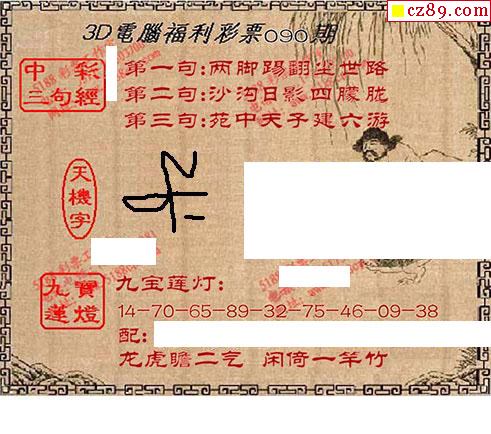 cz89.com
3D電腦福利彩票090期
中彩三句經
第一句:两脚踢翻尘世路
第二句:沙沟日影四朦胧
第三句:苑中天子建六游
天機字
九寶蓮燈
九宝莲灯:
14-70-65-89-32-75-46-09-38
配:
龙虎瞻二气 闲倚一竿竹